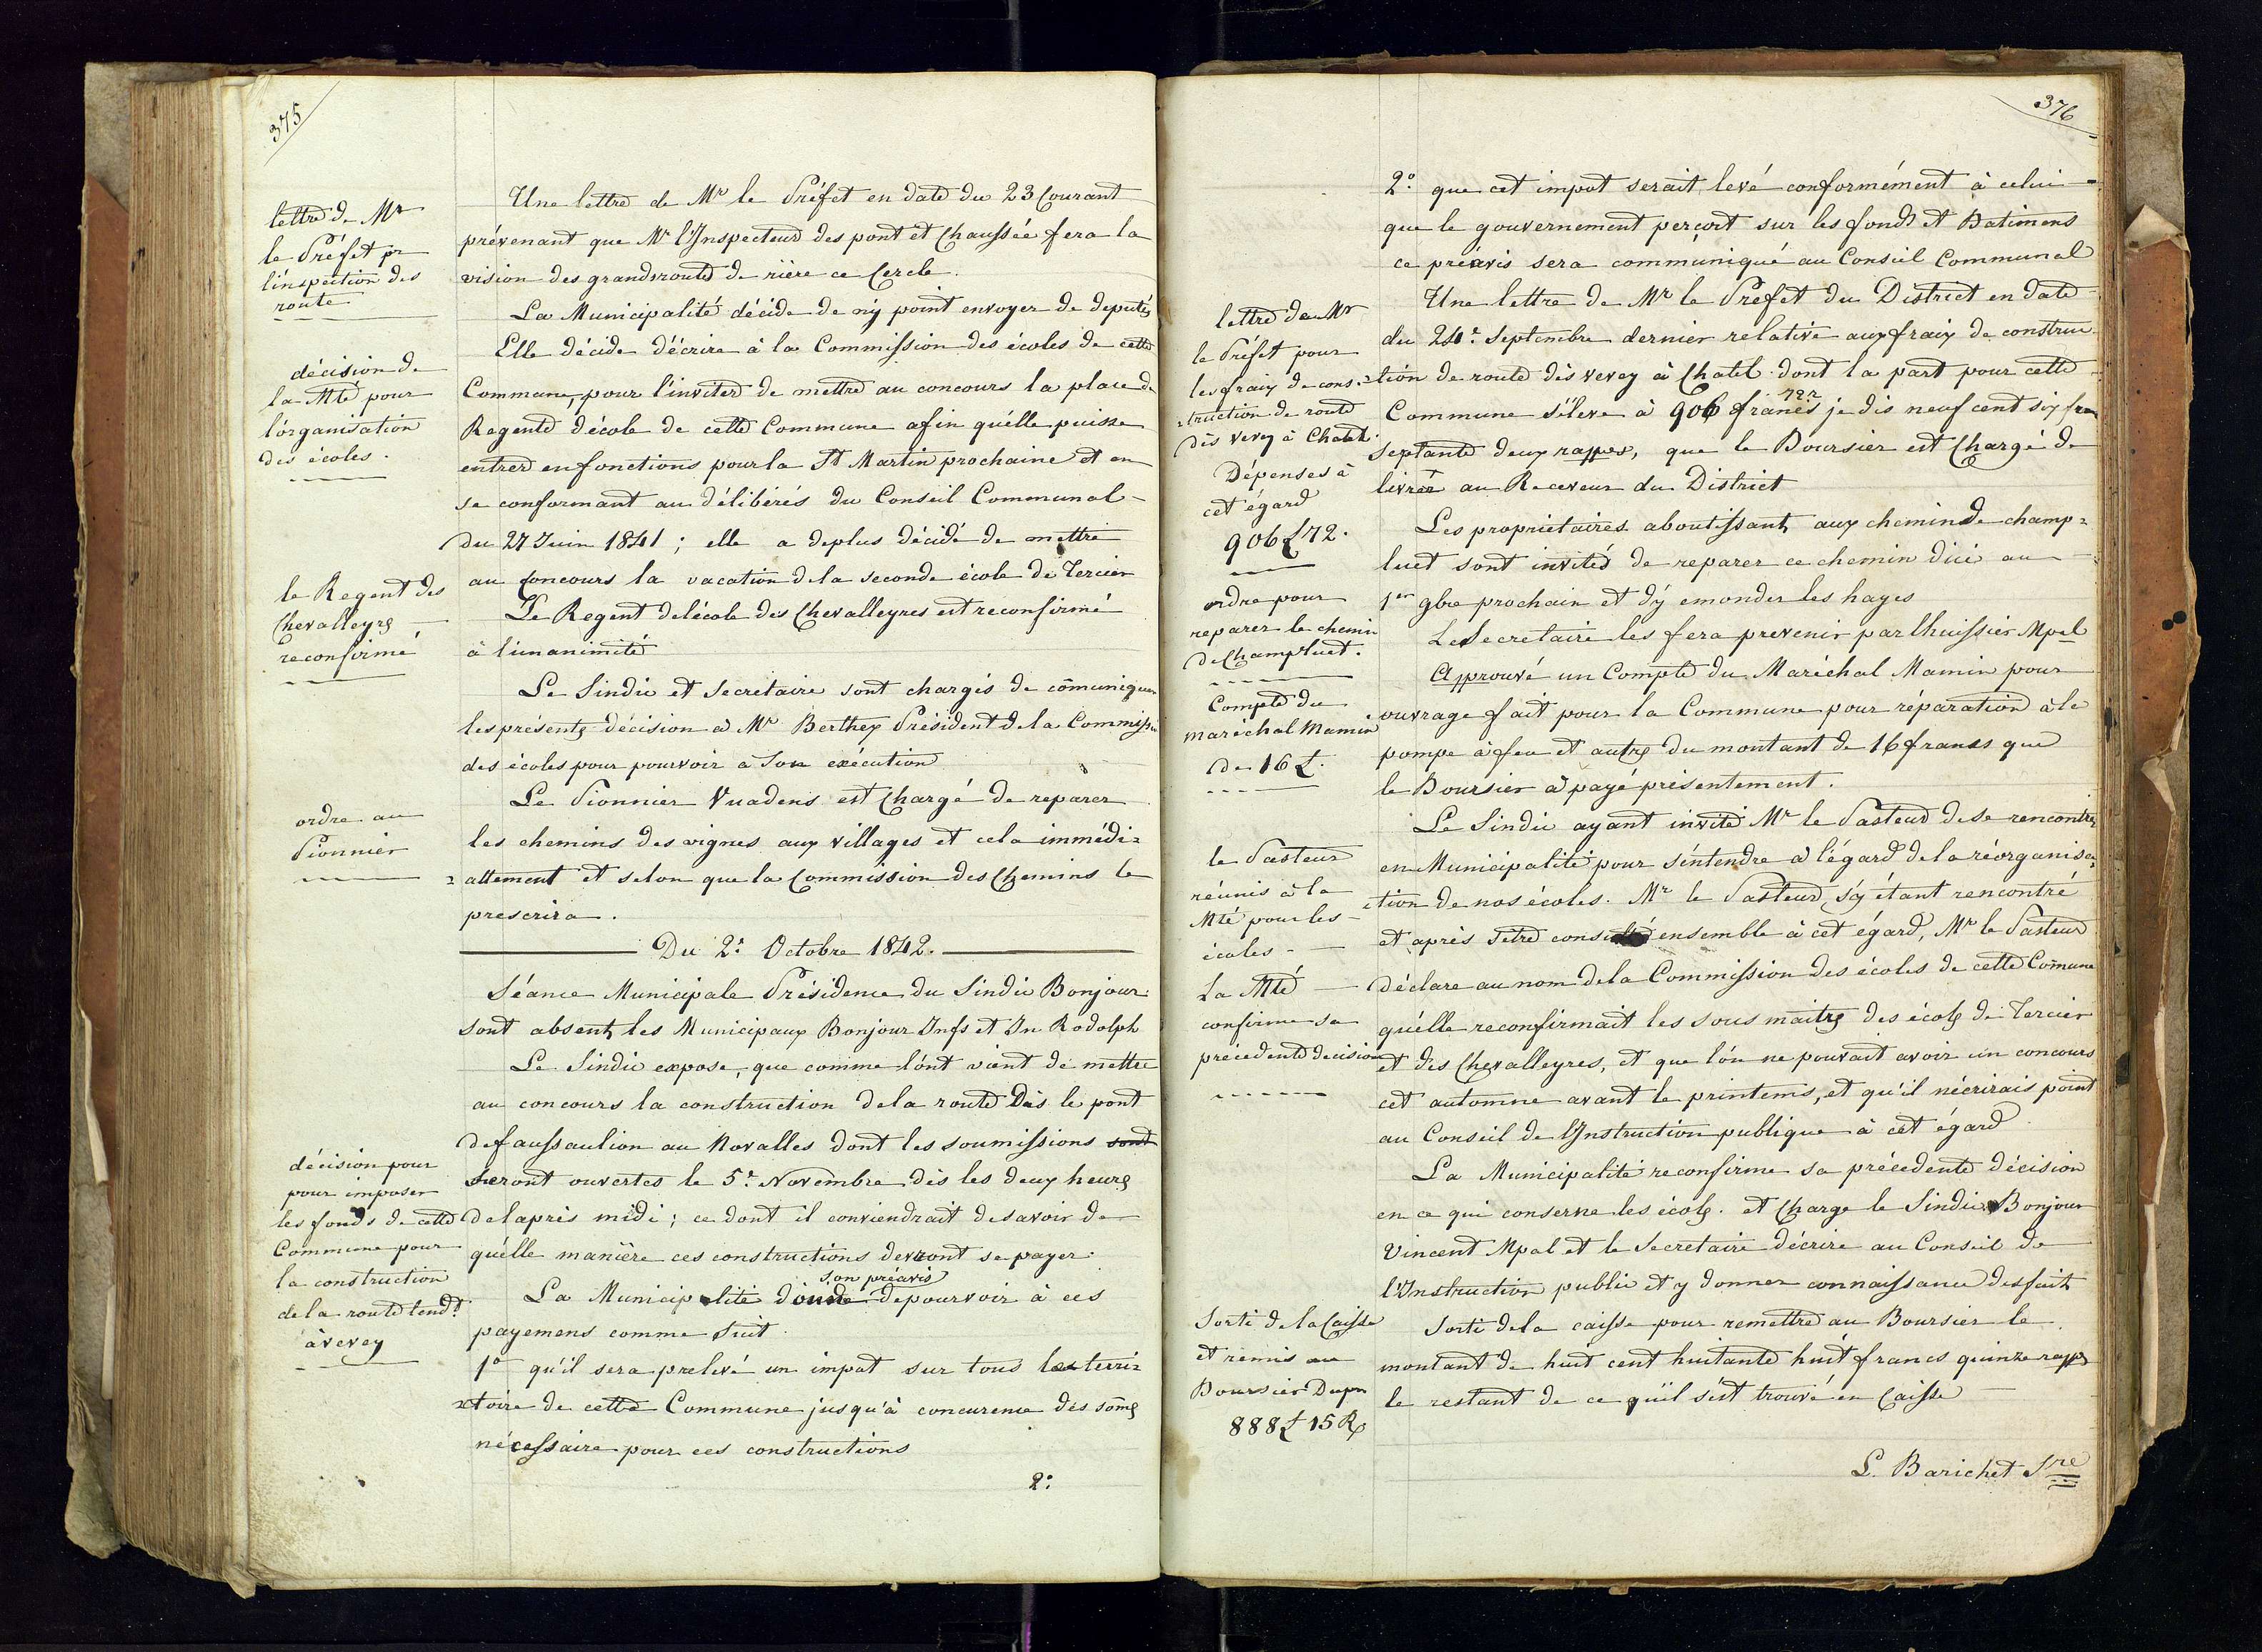 375
lettre de Mr
le Préfet pr
l'inspection des
route
Une lettre de Mr le Préfet en date du 23 Courant
prévenant que Mr l'Inspecteur des pont et Chaussée fera la
vision des grands route de rière ce Cercle.
La Municipalité décide de n'y point envoyer de deputés
décision de
la Mté pour
l'organisation
des écoles.
Elle décide d'écrire à la Commission des écoles de cette
Commune, pour l'inviter de mettre au concours la place de
Regente d'école de cette Commune afin qu'élle puisse
entrer en fonctions pour la St Martin prochaine et en
se conformant au délibérés du Conseil Communal
du 27 Juin 1841 ; elle a deplus décidé de mettre
au Concours la vacation de la seconde école de Tercier
le Regent des
Chevalleyres
reconfirmé
Le Regent de lécole des Chevalleyres est reconfirmé
à l'unanimité
Le Sindic et Secretaire sont chargés de cōmuniquer
les présentes décision à Mr Berthex Président de la Commission
des écoles pour pourvoir à son exécution
ordre au
Pionnier
Le Pionnier Vuadens est Chargé de reparer
les chemins des vignes aux villages et cela immédi=
=attement et selon que la Commission des Chemins le
prescrira.
Du 2e Octobre 1842.
Séance Municipale Présidence du Sindic Bonjour
sont absents les Municipaux Bonjour Jnfs et Jn Rodolph
Le Sindic expose, que comme l'ont vient de mettre
au concours la construction de la route Dès le pont
de faussaulion au Novalles dont les soumissions sont
seront ouvertes le 5e Novembre dès les deux heures
de laprès midi ; ce dont il conviendrait de savoir de
qu'élle manière ces constructions devront se payer.
décision pour
pour imposer
les fonds de cette
Commune pour
la construction
de la route tendt
à vevey
son préavis
La Municipalité donne de pourvoir à ces
payemens comme suit.
1o qu'il sera prelevé un impot sur tous les terri=
=toire de cette Commune jusqu'à concurence des sōmes
nécessaire pour ces constructions
2o
376
2o que cet impot serait levé conformément à celui
que le gouvernement perçoit sur les fonds et Batimens
ce préavis sera communiqué au Conseil Communal
lettre de Mr
le Préfet pour
les fraix de cons=
=truction de route
dès Vevey à Chatel.
Dépenses à
cet égard
906 £ 72.
Une lettre de Mr le Préfet du District en date
du 24e Septembre dernier relative aux fraix de construc
=tion de route dès vevey à Chatel dont la part pour cette
72 r
Commune s'éleve à 906 francs je dis neuf cent six fra
septante deux rappes, que le Boursier est Chargé de
livrer au Receveur du District
ordre pour
reparer le chemin
de Champluet.
Les propriétaires aboutissant aux chemin de champ=
luet sont invités de reparer ce chemin d'ici au
1er 9bre prochain et d'y emonder les hayes
Le Secretaire les fera prevenir par lhuissier Mpal
Compte du
maréchal Mamin
de 16 £.
Approuvé un Compte du Maréchal Mamin pour
ouvrage fait pour la Commune pour réparation à la
pompe à feu et autres du montant de 16 francs que
le Boursier à payé présentement.
le Pasteur
réunis à la
Mté pour les
écoles
Le Sindic ayant invité Mr le Pasteur de se rencontrer
en Municipalité pour s'éntendre à l'égard de la réorganisa=
=tion de nos écoles. Mr le Pasteur, s'y étant rencontré
et après sêtre consulté ensemble à cet égard, Mr le Pasteur
déclare au nom de la Commission des écoles de cette Cōmune
qu'élle reconfirmait les sous maitres des écoles de Tercier
et des Chevalleyres, et que l'ón ne pouvait avoir un concours
cet automne avant le printems, et qu'il nécrirais point
au Conseil de l'Instruction publique à cet égard
La Mté
confirme sa
précedente decision
La Municipalité reconfirme sa précedente décision
en ce qui conserne les écoles. et Charge le Sindic Bonjour
Vincent Mpal et le Secretaire d'écrire au Conseil de
l'Instruction public et y donner connaissance des faits
Sorti de la Caisse
et remis au
Boursier Dupn
888 £ 15 R
Sorti de la caisse pour remettre au Boursier le
montant de huit cent huitante huit francs quinze rappes
le restant de ce qu'il s'est trouvé en Caisse
L. Barichet Sre